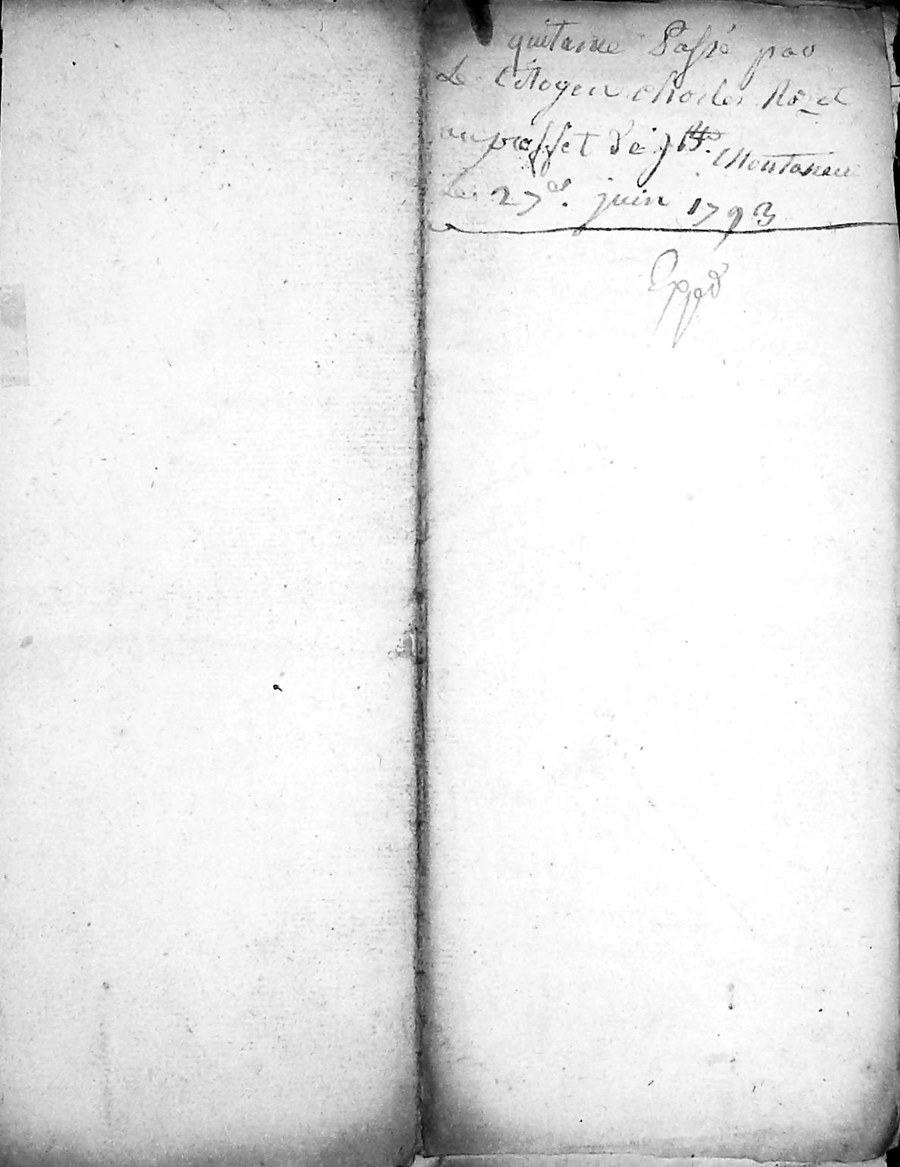 quitanse Passé par
Le Citoyen charles No et
au proffet de j Bte. Montaneu
Le 27e. juin 1793
Exped